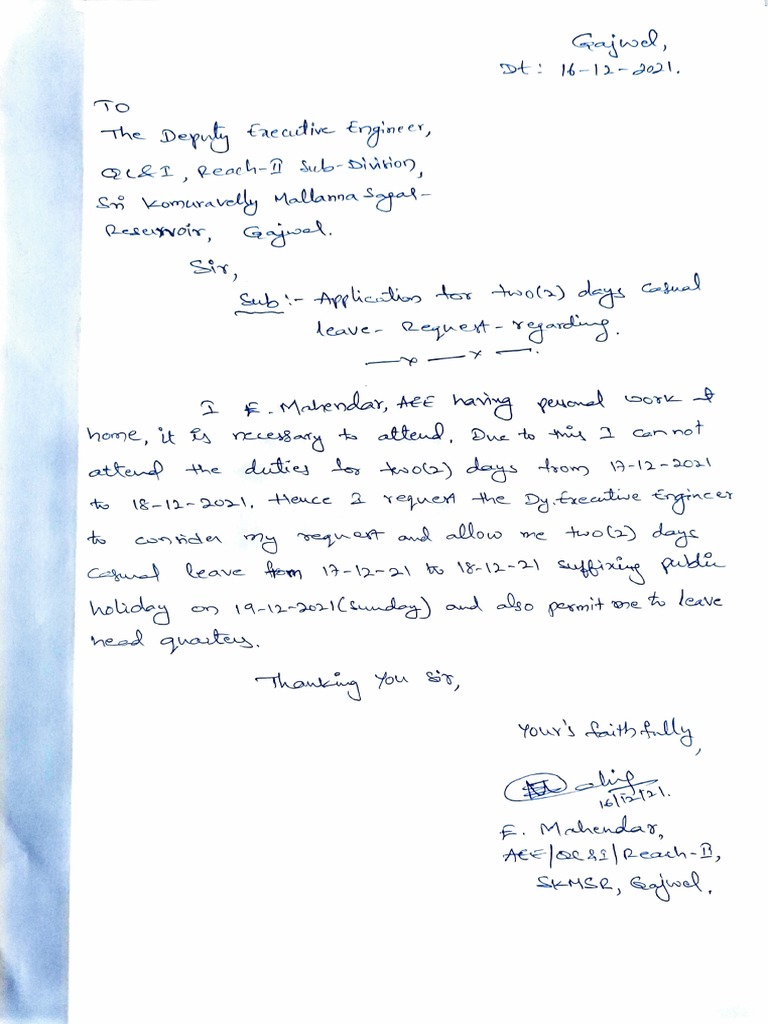 Gajwel,
Dt: 16-12-2021.
TO
The Deputy Executive Engineer,
QC&I, Reach-II Sub-Division,
Sri Komuravelly Mallanna Sagar-
Reservoir, Gajwel.
Sir,
Sub:- Application for two(2) days casual
leave- Request-regarding.
—x—x—.
I E. Mahendar, AEE having personal work at
home, it is necessary to attend. Due to this I cannot
attend the duties for two(2) days from 17-12-2021
to 18-12-2021. Hence I request the Dy.Executive Engineer
to consider my request and allow me two(2) days
casual leave from 17-12-21 to 18-12-21 suffixing public
holiday on 19-12-2021(sunday) and also permit me to leave
head quarters.
Thanking You Sir,
Your's faithfully,
16/12/21.
E. Mahendar,
AEE/QC&I/Reach-II,
SKMSR, Gajwel.